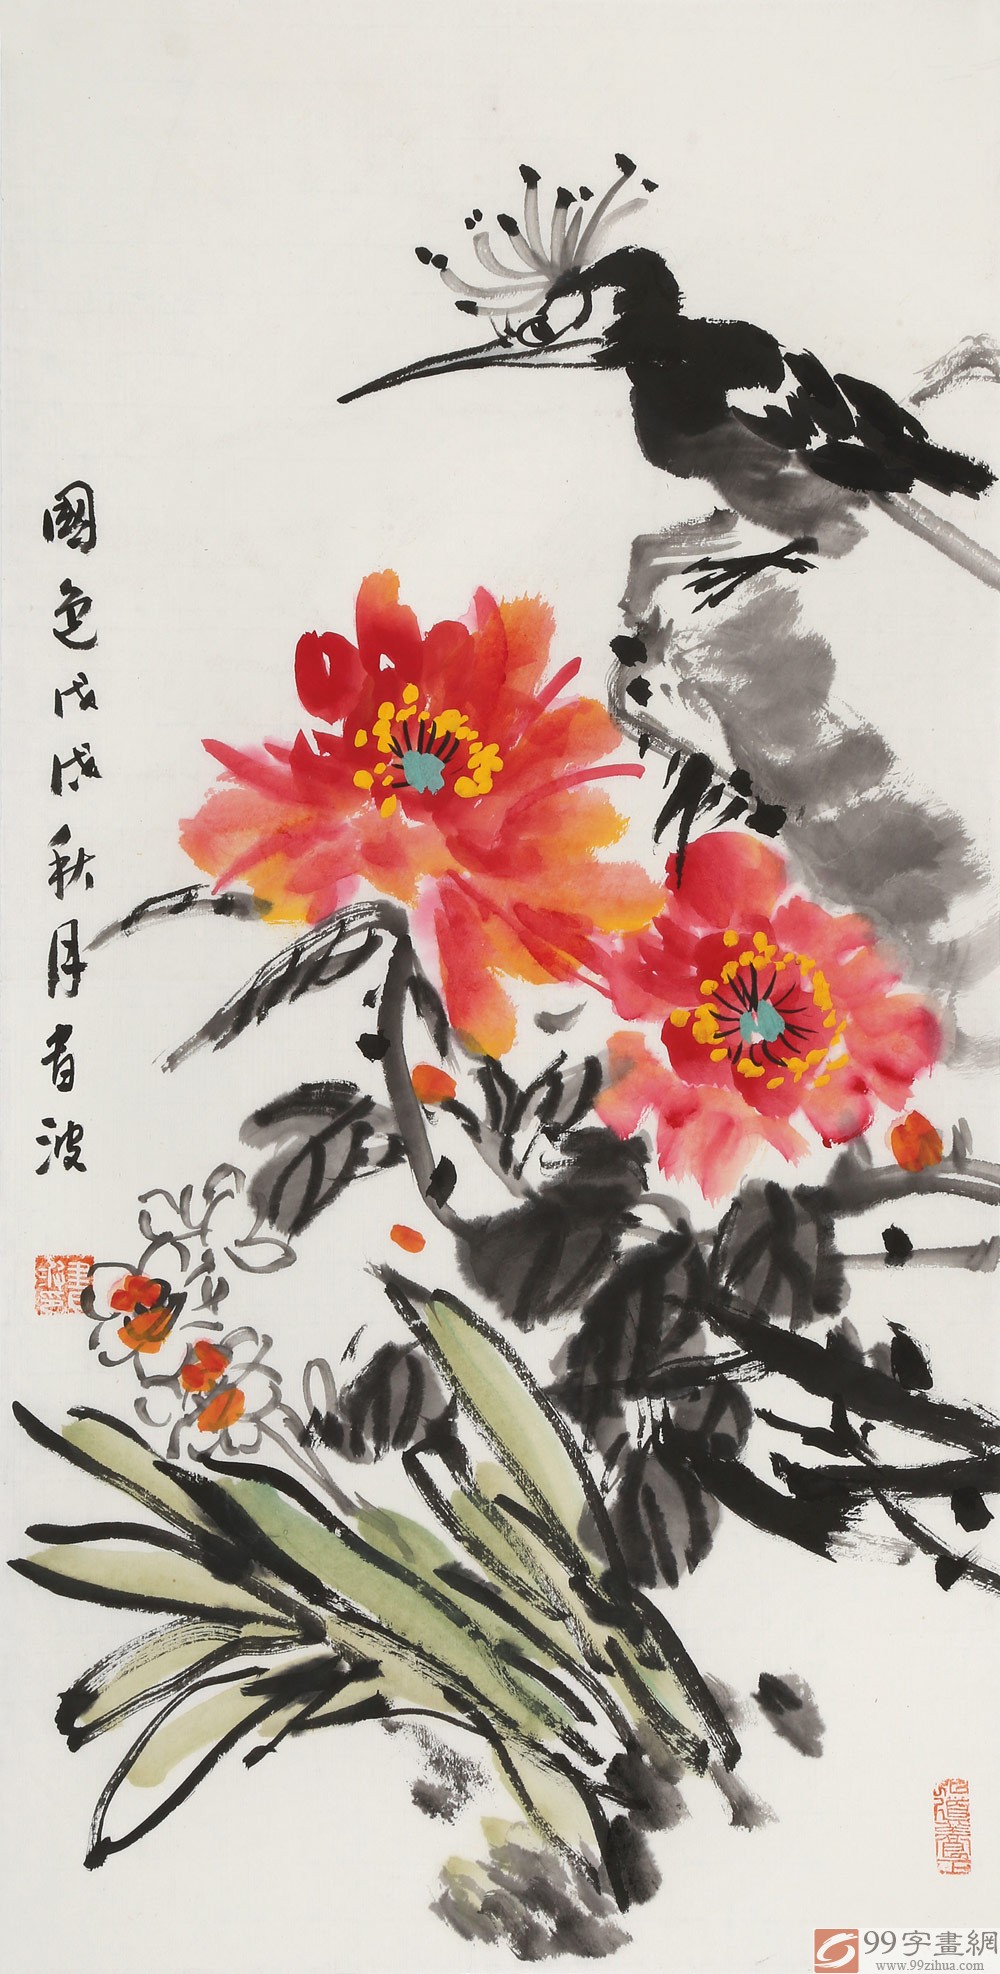 國色戊戌秋月春波
99字畫網
www.99zihua.com